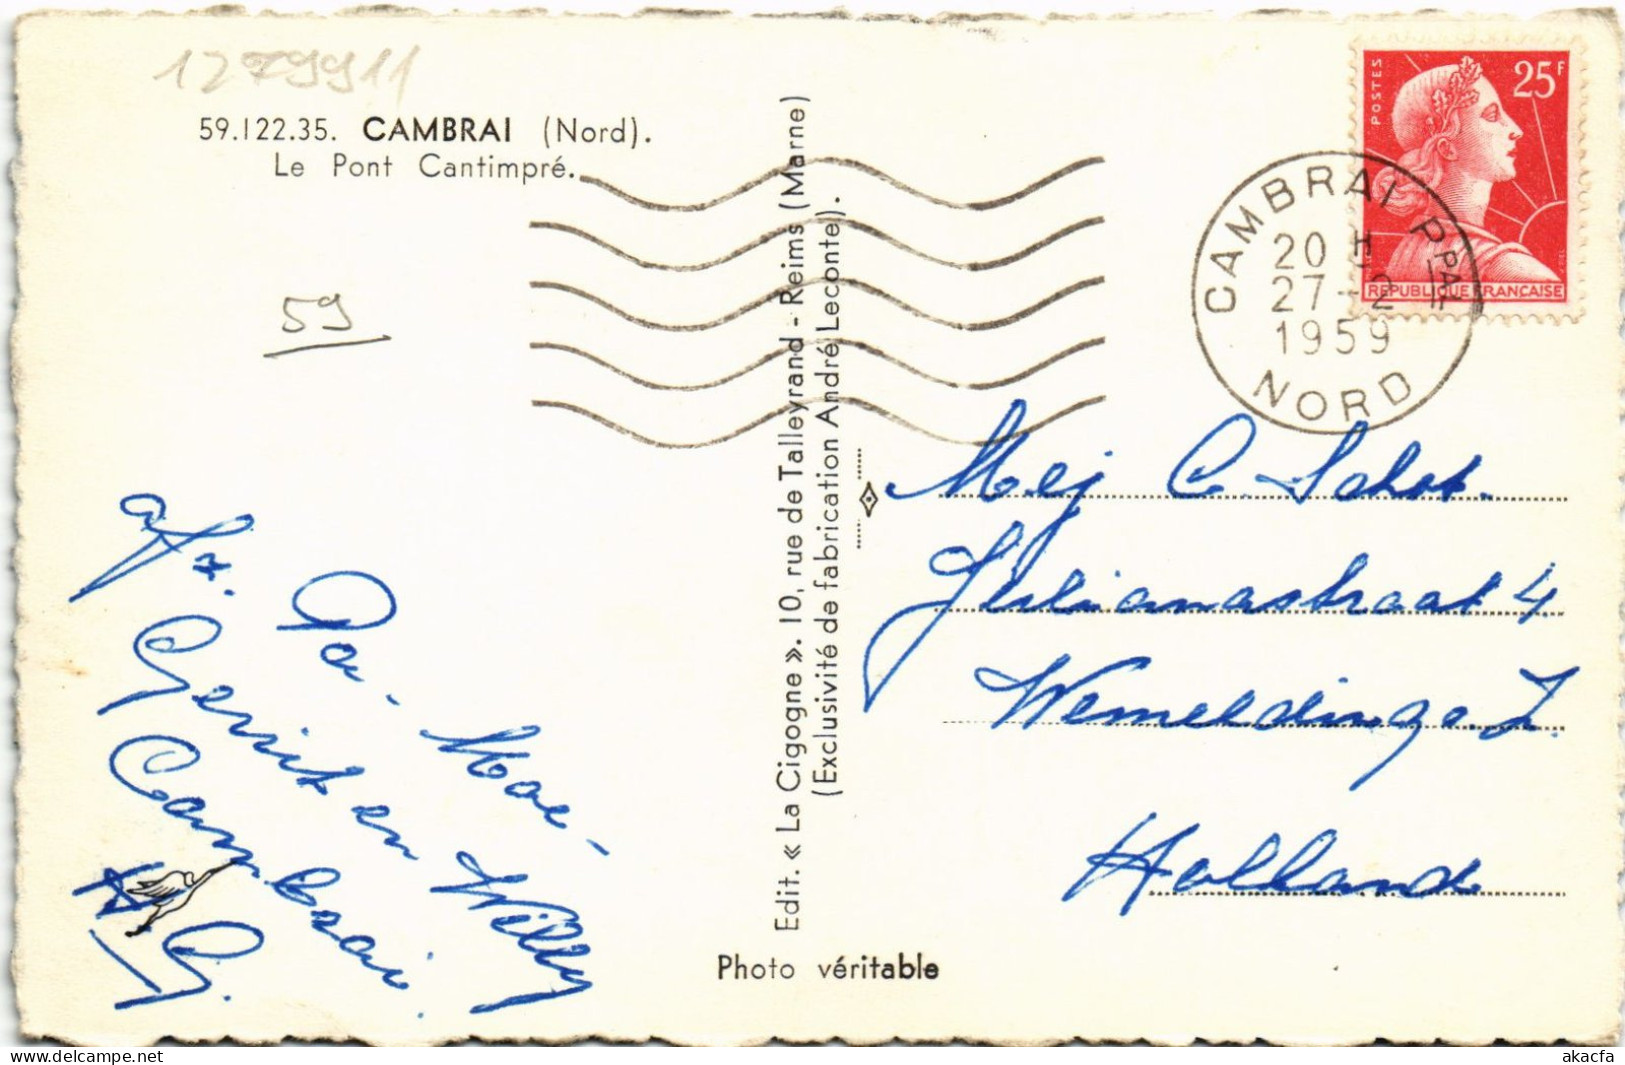 1279911
59.122.35. CAMBRAI (Nord).
Le Pont Cantimpré.
59
Afz.
Pa - Moe -
Gerrit en Willy
Cambrai.
Edit. « La Cigogne ». 10, rue de Talleyrand - Reims (Marne)
(Exclusivité de fabrication André Leconte).
Photo véritable
POSTES
25F
REPUBLIQUE FRANCAISE
CAMBRAI PPAL
20 H
27 - 2
1959
NORD
Mej C. Schot.
Julianastraat 4
Wemeldinge. Z.
Holland
delcampe.net
akacfa